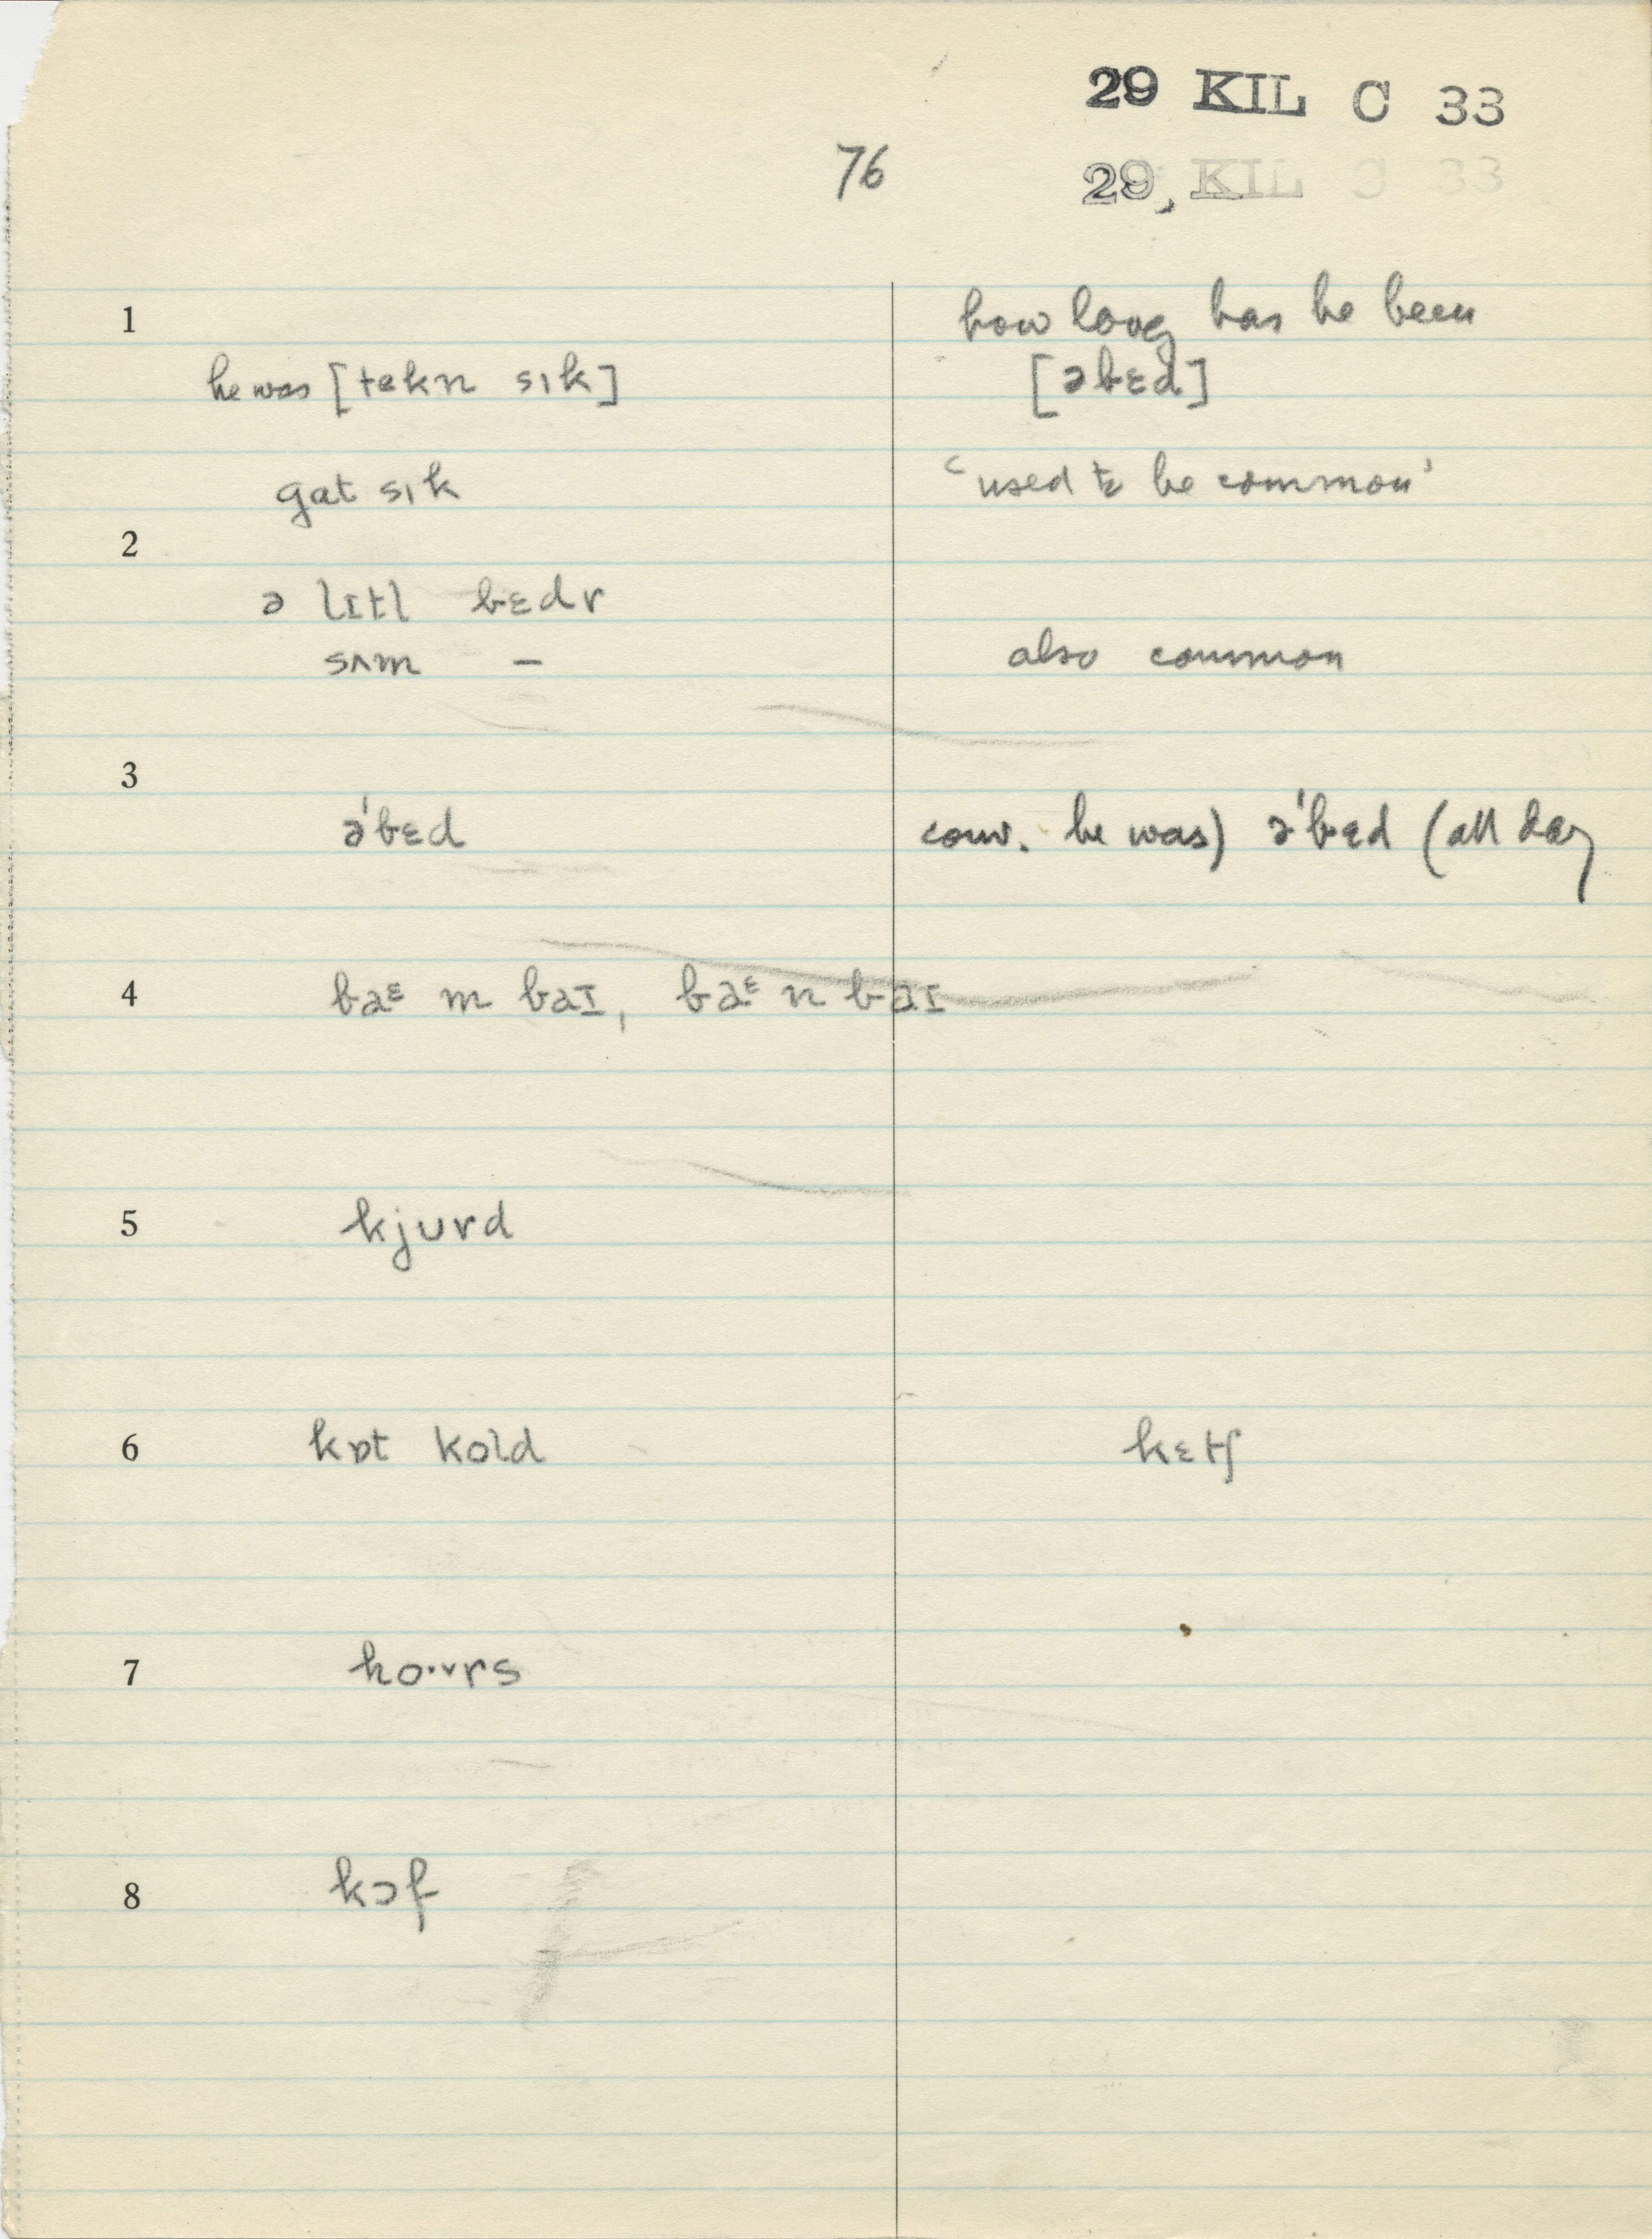 29 KIL C 33
76
29, KIL C 33
1
how long has he been
he was [tekn sık] [əbɛd]
gat sık ‘used to be common’
2
ə lɪtl bɛdr
sʌm – also common
3
ə'bɛd conv. he was) ə'bɛd (all day
4 baᵋ m baɪ, baᵋ n baɪ
5 kjurd
6 kɒt kold kɛtʃ
7 ho·vrs
8 kɔf